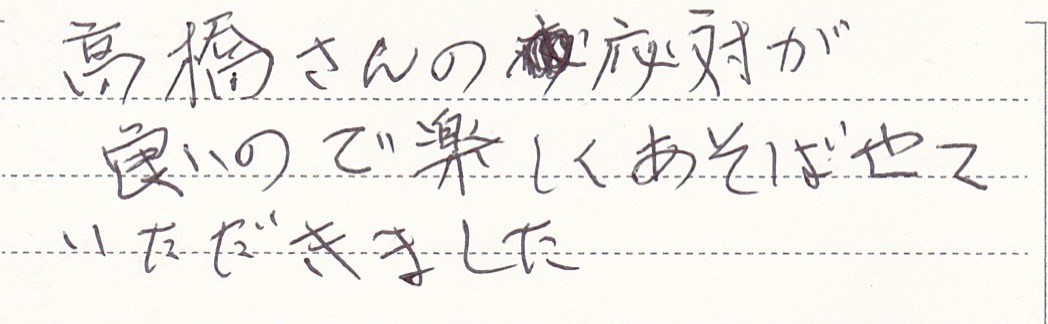 高橋さんの応対が
良いので楽しくあそばせて
いただきました